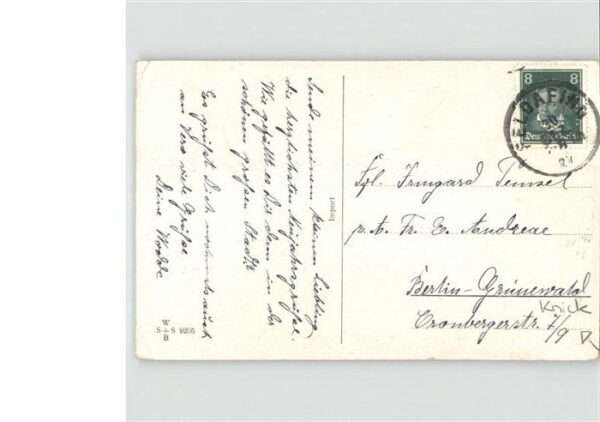 Sende meinem kleinen Liebling
die herzlichsten Neujahrsgrüße.
Wie gefällt es Dir denn in der
schönen großen Stadt?
Es grüßt Dich nochmals auch
an Vera viele Grüße
Deine
Import
W
S+S
B
8 8
FELDAFING
Frl. Irmgard
p. A. Fr. E. Andreae
Berlin-Grunewald
Cronbergerstr. 7/9
Knick